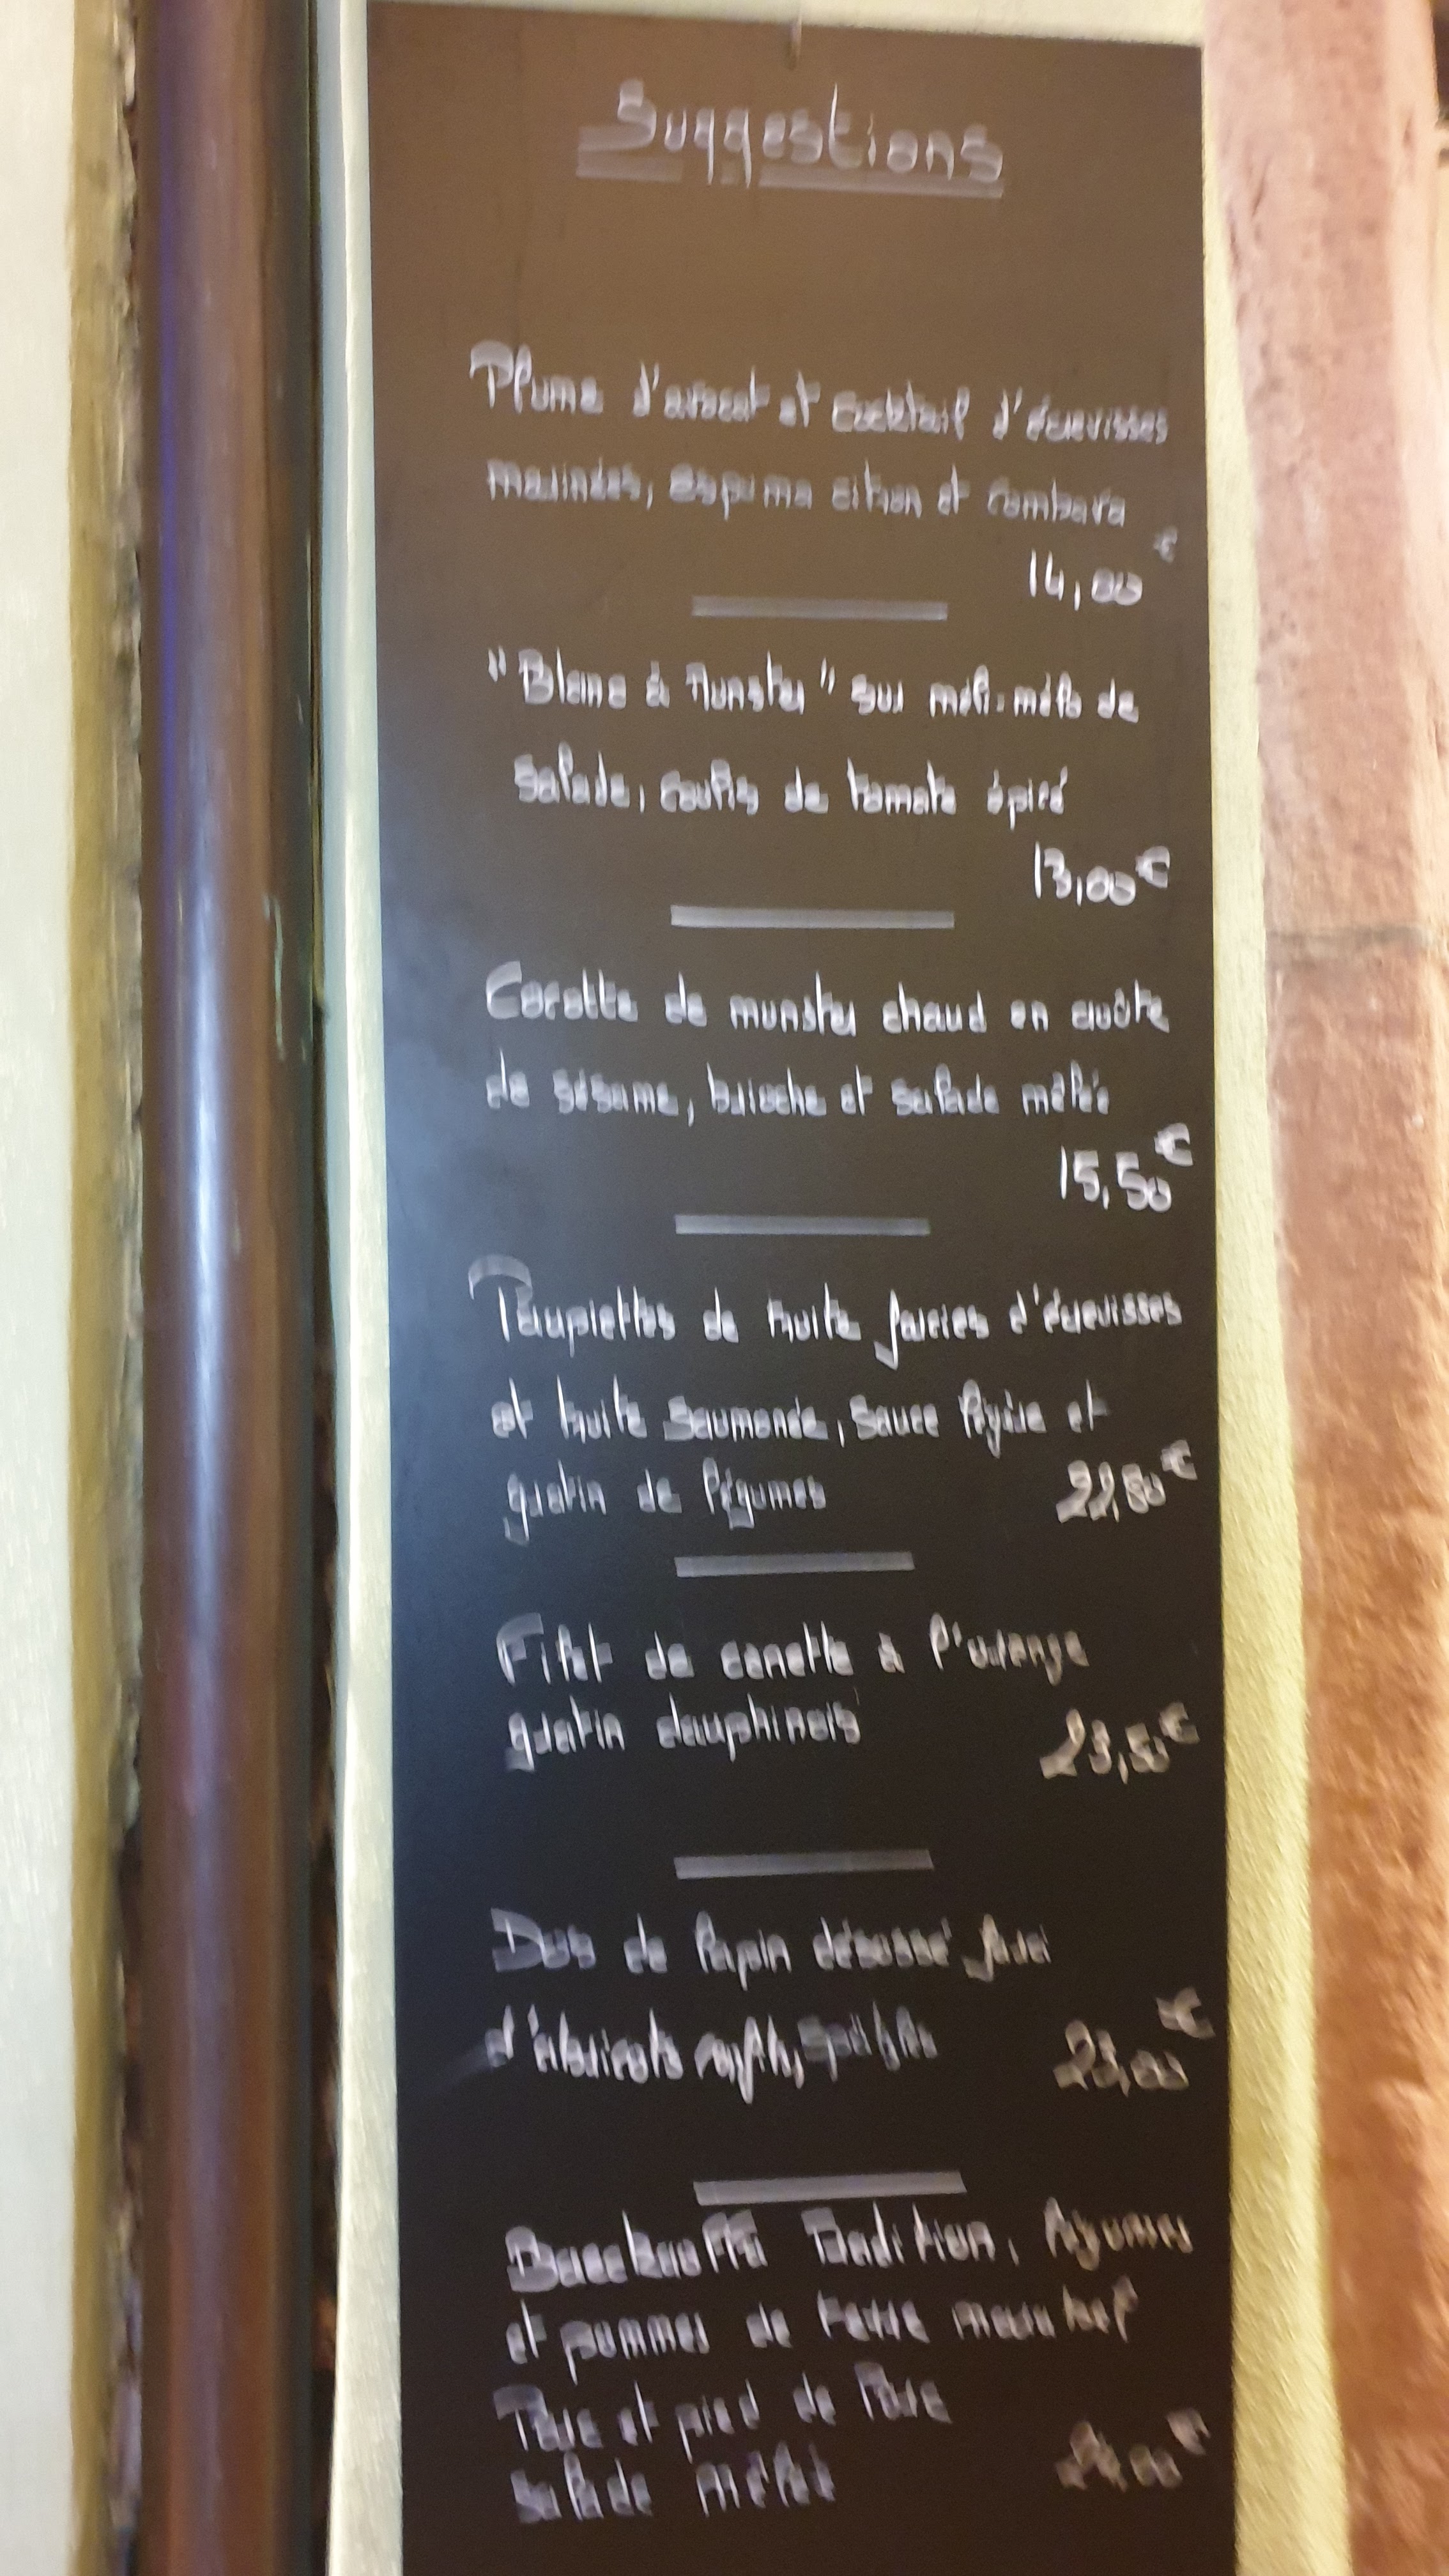 Suggestions
Plume d'avocat et cocktail d'écrevisses
marinées, espuma citron et combava
14,00 €
"Blanc à Munster" sur méli-mélo de
salade, coulis de tomate épicé
13,00 €
Carotte de munster chaud en croûte
de sésame, brioche et salade mêlée
15,50 €
Paupiettes de truite farcies d'écrevisses
et truite saumonée, sauce légère et
gratin de légumes 22,80 €
Filet de canette à l'orange
gratin dauphinois 23,50 €
Dos de lapin désossé farci
d'abricots spätzle 23,00 €
Baeckaoffa Tradition, légumes
et pommes de terre
Porc et pied de Porc
salade mêlée 24,00 €